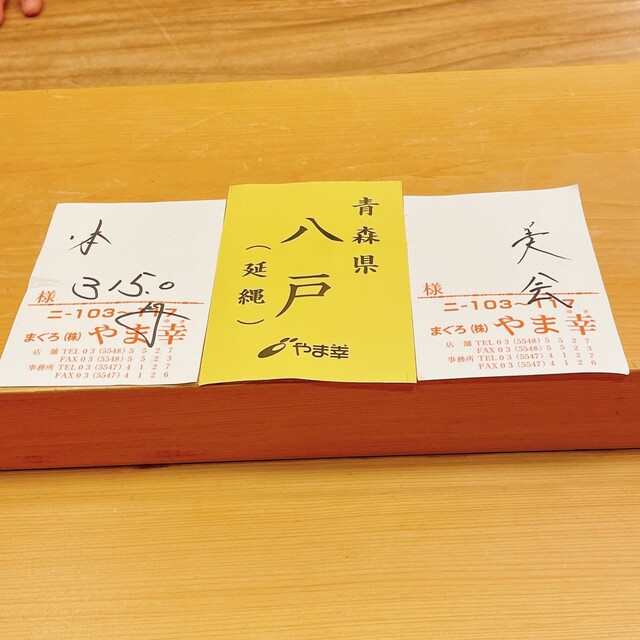 315.0
様
ニ-103-117
まぐろ(株) やま幸
店舗 TEL 03 (5548) 5 5 2 7
FAX 03 (5548) 5 5 2 3
事務所 TEL 03 (5547) 4 1 2 7
FAX 03 (5547) 4 1 2 6
青森県
八戸
(延縄)
やま幸
様
ニ-103-117
まぐろ(株) やま幸
ゆき
店舗 TEL 03 (5548) 5 5 2 7
FAX 03 (5548) 5 5 2 3
事務所 TEL 03 (5547) 4 1 2 7
FAX 03 (5547) 4 1 2 6